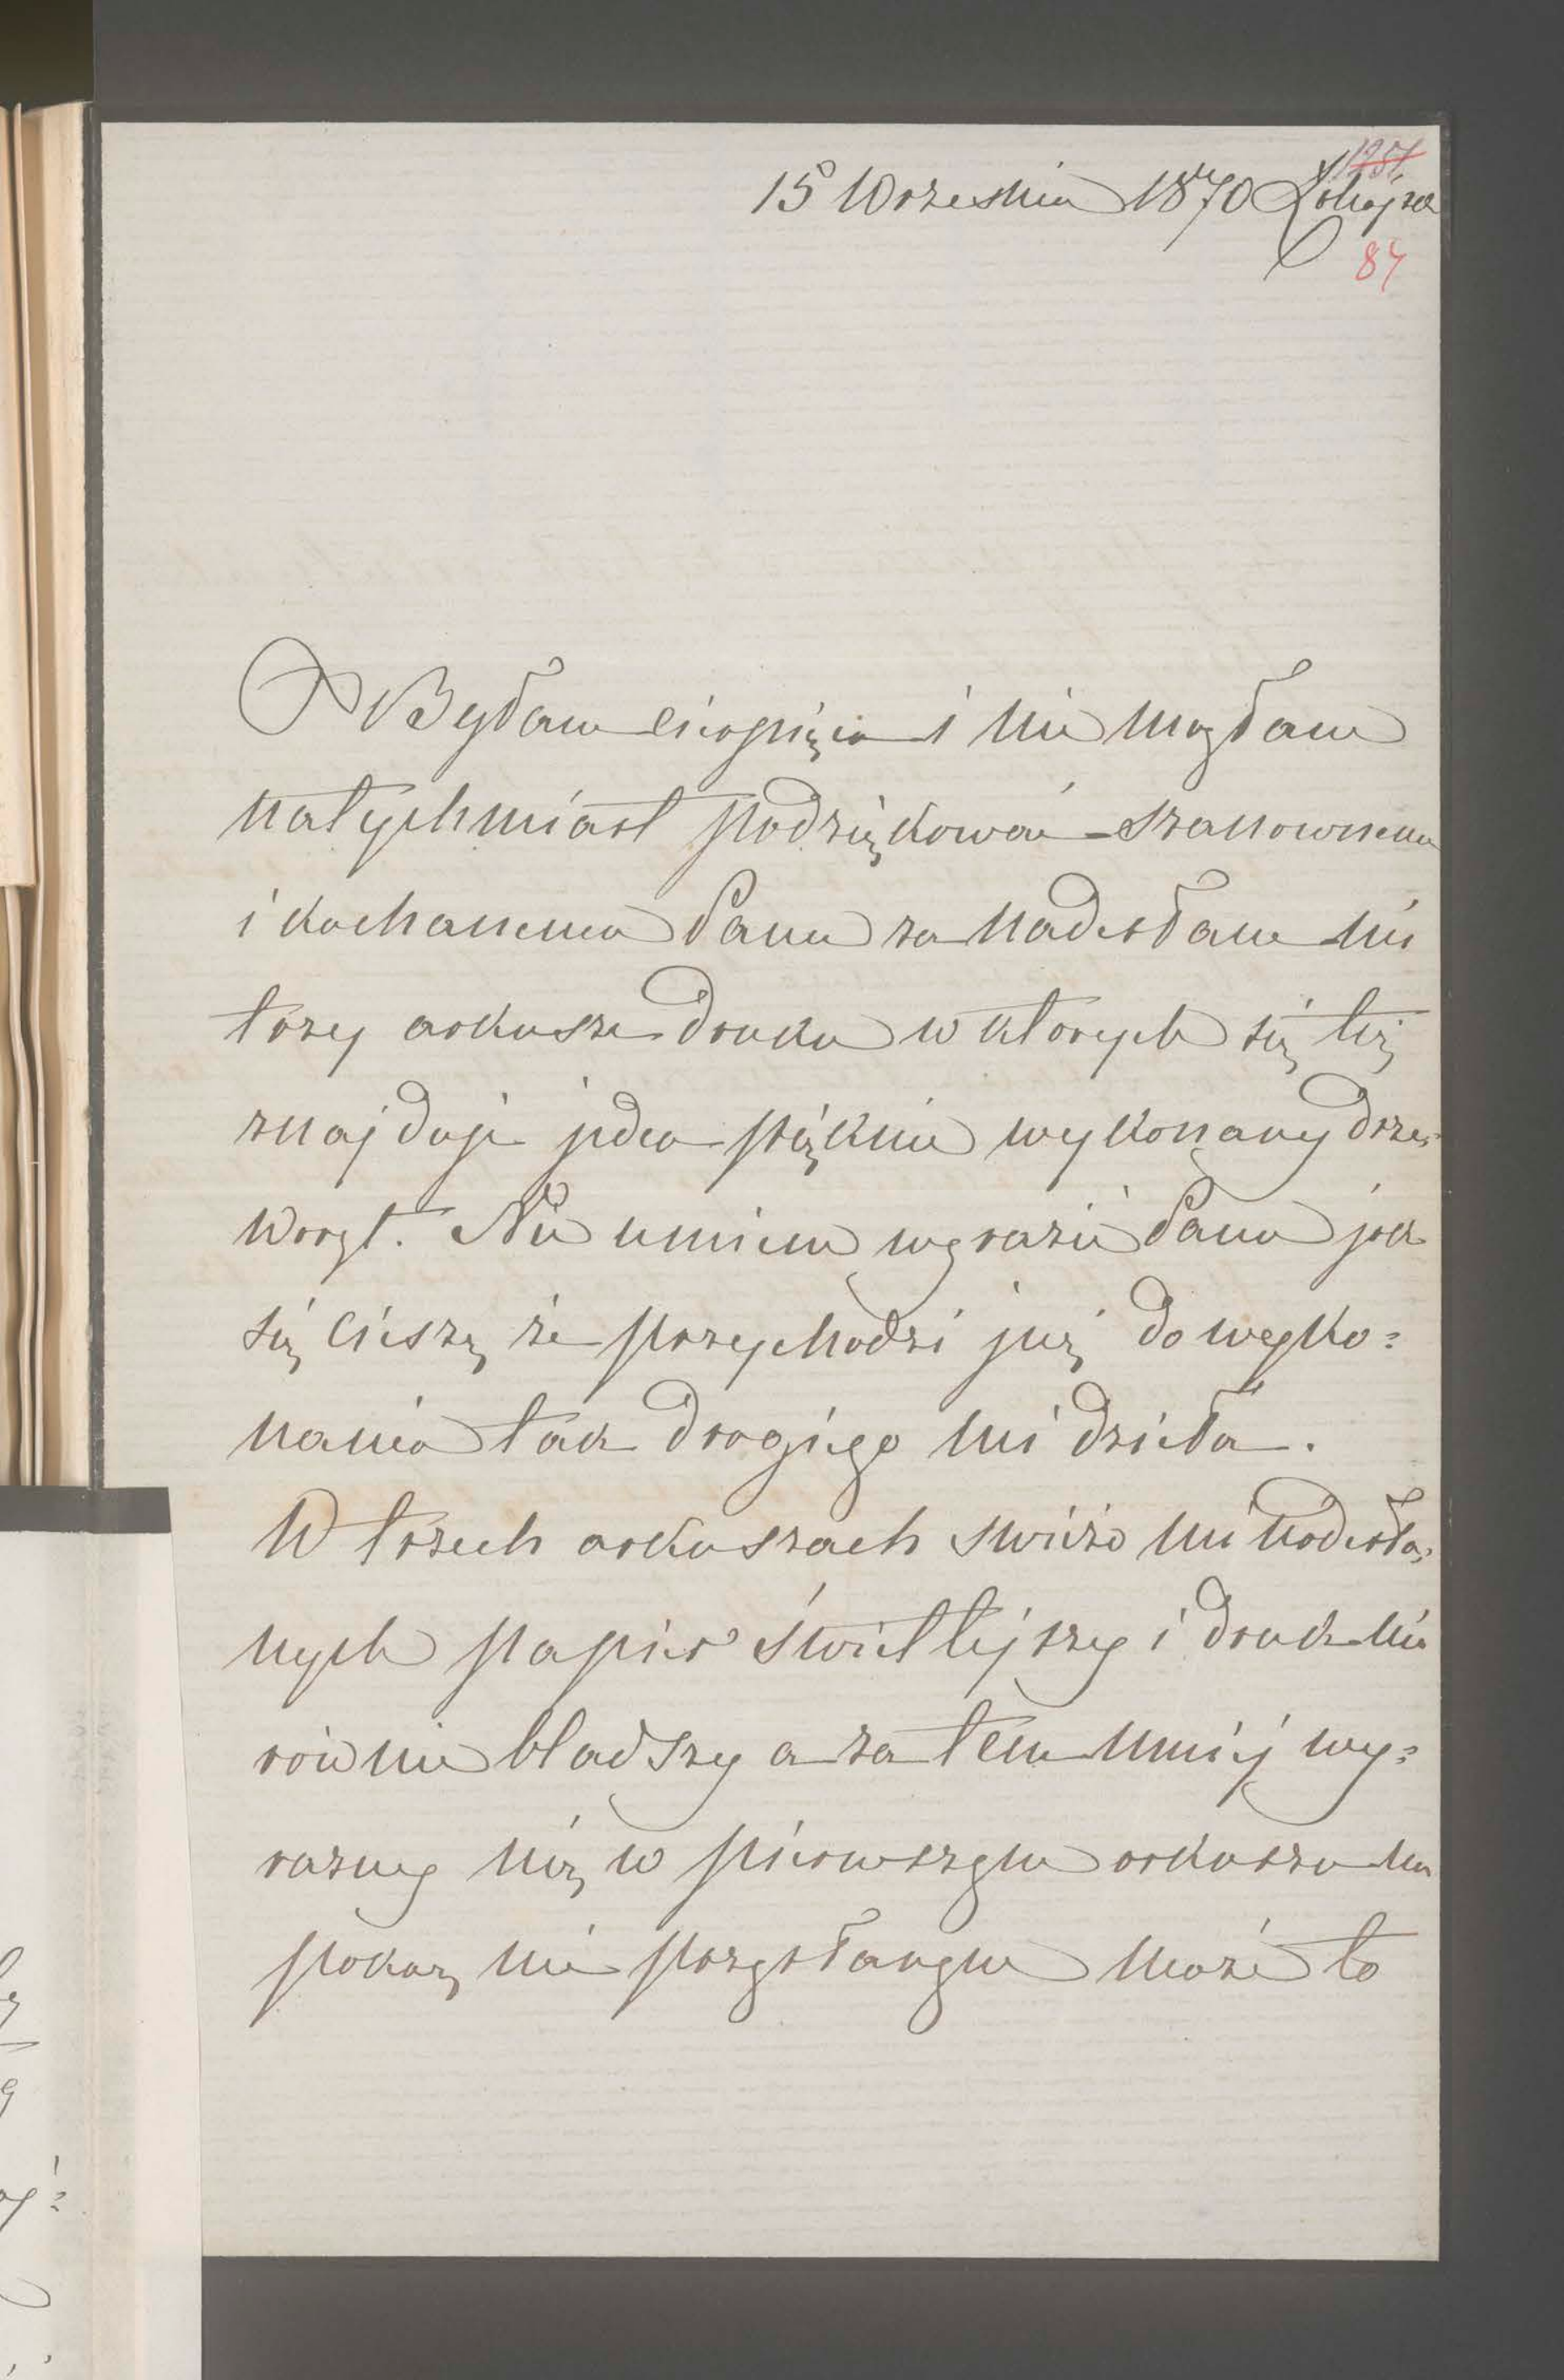 1251
15 Wrzesnia 1870
84
Byłam cierpiąca i nie mogłam
natychmiast podziękować szanownemu
i kochanemu Panu za nadesłane mi
trzy arkusze druku w których się też
znajduje jeden pięknie wykonany drze=
woryt. Nie umiem wyrazić Panu jak
się cieszę że przychodzi już do wyko=
nania tak drogiego mi dzieła.
W trzech arkuszach swieżo mi nadesła=
nych papier świetlejszy i druk nie
równie bladszy a zatem mniej wy=
razny niż w pierwszym arkuszu na
pokaz mi przysłanym może to